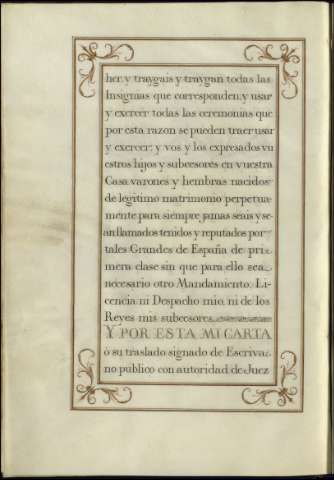 her y traygais y traygan todas las
Insignias que corresponden y usar
y exercer todas las ceremonias que
por esta razon se pueden traer usar
y exercer: y vos y los expresados vu
estros hijos y subcesores en vuestra
Casa varones y hembras nacidos
de legitimo matrimonio perpetua
mente para siempre jamas seais y se
an llamados tenidos y reputados por
tales Grandes de España de pri
mera clase sin que para ello sea
necesario otro Mandamiento Li
cencia ni Despacho mio, ni de los
Reyes mis subcesores
Y POR ESTA MI CARTA
o su traslado signado de Escriva
no publico con autoridad de Juez